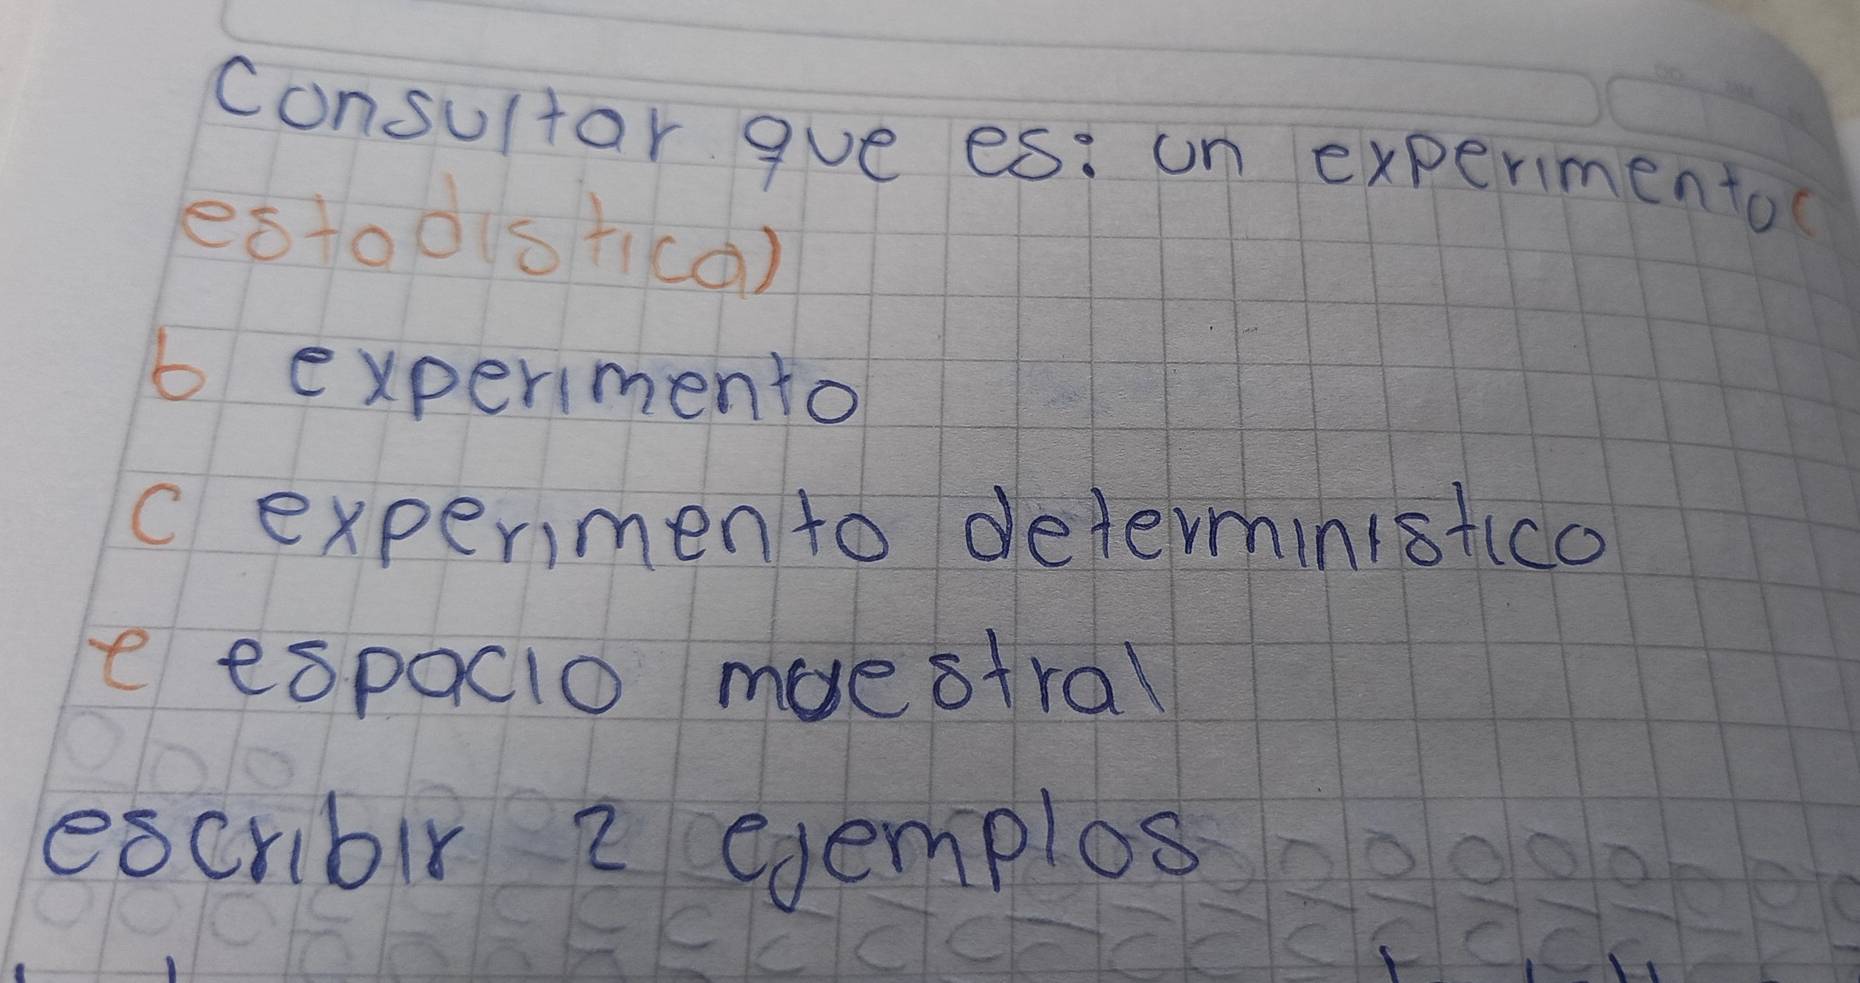 Consultar que es: un experimento(
estadistica)
b experimento
c experimento deterministico
e espacio muestral
escribir 2 ejemplos